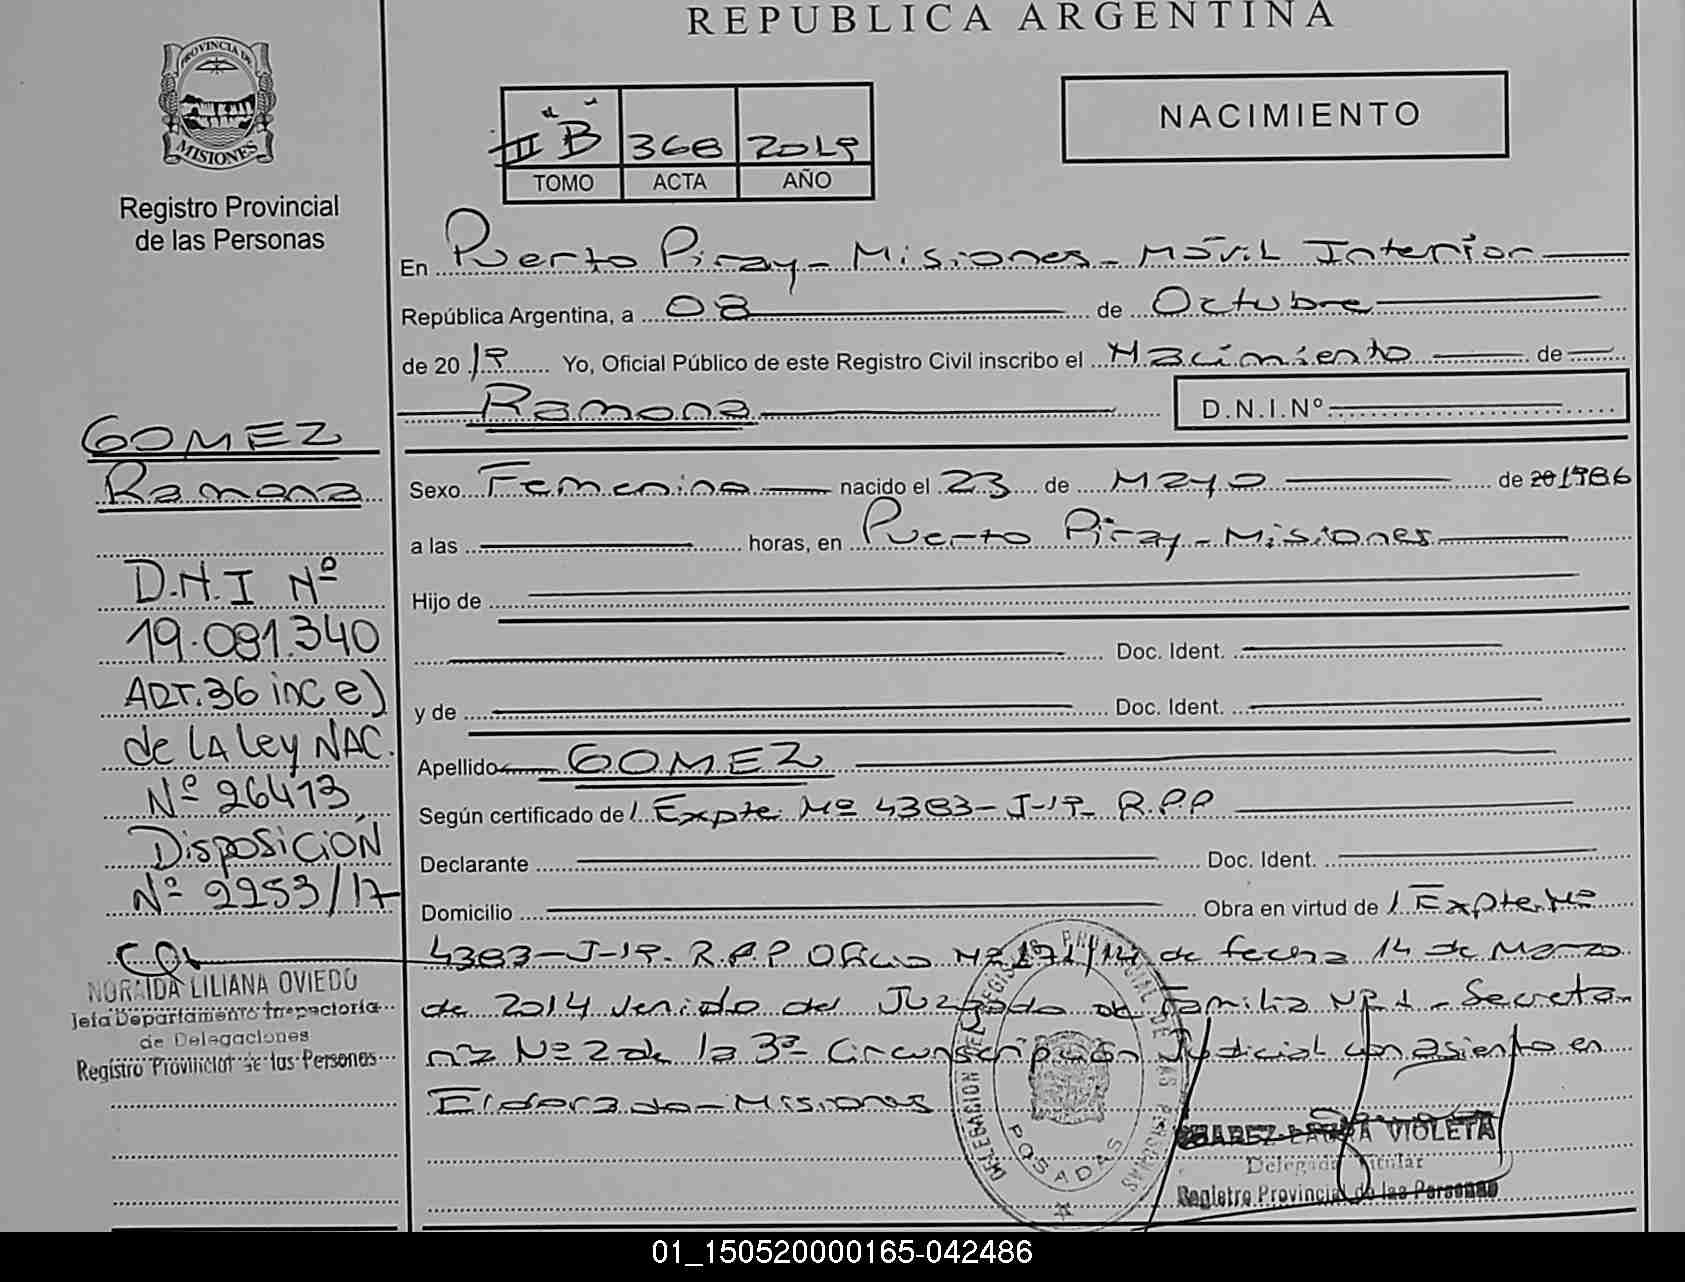 REPUBLICA ARGENTINA
PROVINCIA DE
MISIONES
Registro Provincial
de las Personas
III "B" 368 2019
TOMO ACTA AÑO
NACIMIENTO
En Puerto Piray - Misiones - Móvil Interior
República Argentina, a 08 de Octubre
de 2019 Yo, Oficial Público de este Registro Civil inscribo el Nacimiento de
Ramona D.N.I.Nº
GOMEZ
Ramona
D.N.I Nº
19.081.340
ART.36 inc e)
de LA Ley NAC.
Nº 26413
Disposición
Nº 2253/17
NORAIDA LILIANA OVIEDO
Jefa Departamento Inspectoria
de Delegaciones
Registro Provincial de las Personas
Sexo Femenino nacido el 23 de Mayo de 20 1986
a las horas, en Puerto Piray - Misiones
Hijo de
Doc. Ident.
y de Doc. Ident.
Apellido GOMEZ
Según certificado de Expte Nº 4383-J-19- R.P.P
Declarante Doc. Ident.
Domicilio Obra en virtud de Expte. Nº
4383-J-19- R.P.P Oficio Nº 171/14 de fecha 14 de Marzo
de 2014 venido del Juzgado de Familia Nº 1 - Secreta
ria Nº 2 de la 3ª Circunscripción Judicial con asiento en
Eldorado - Misiones
DELEGACION DEL REGISTRO PROVINCIAL DE LAS PERSONAS
POSADAS
LAURA VIOLETA
Delegada Titular
Registro Provincial de las Personas
01_150520000165-042486